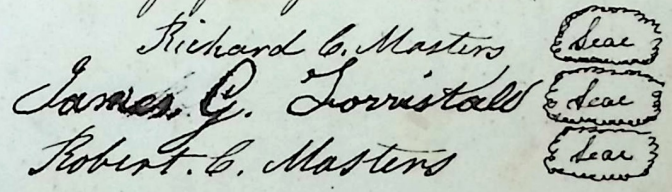 Richard C. Masters Seal
James G. Forristall Seal
Robert. C. Masters Seal